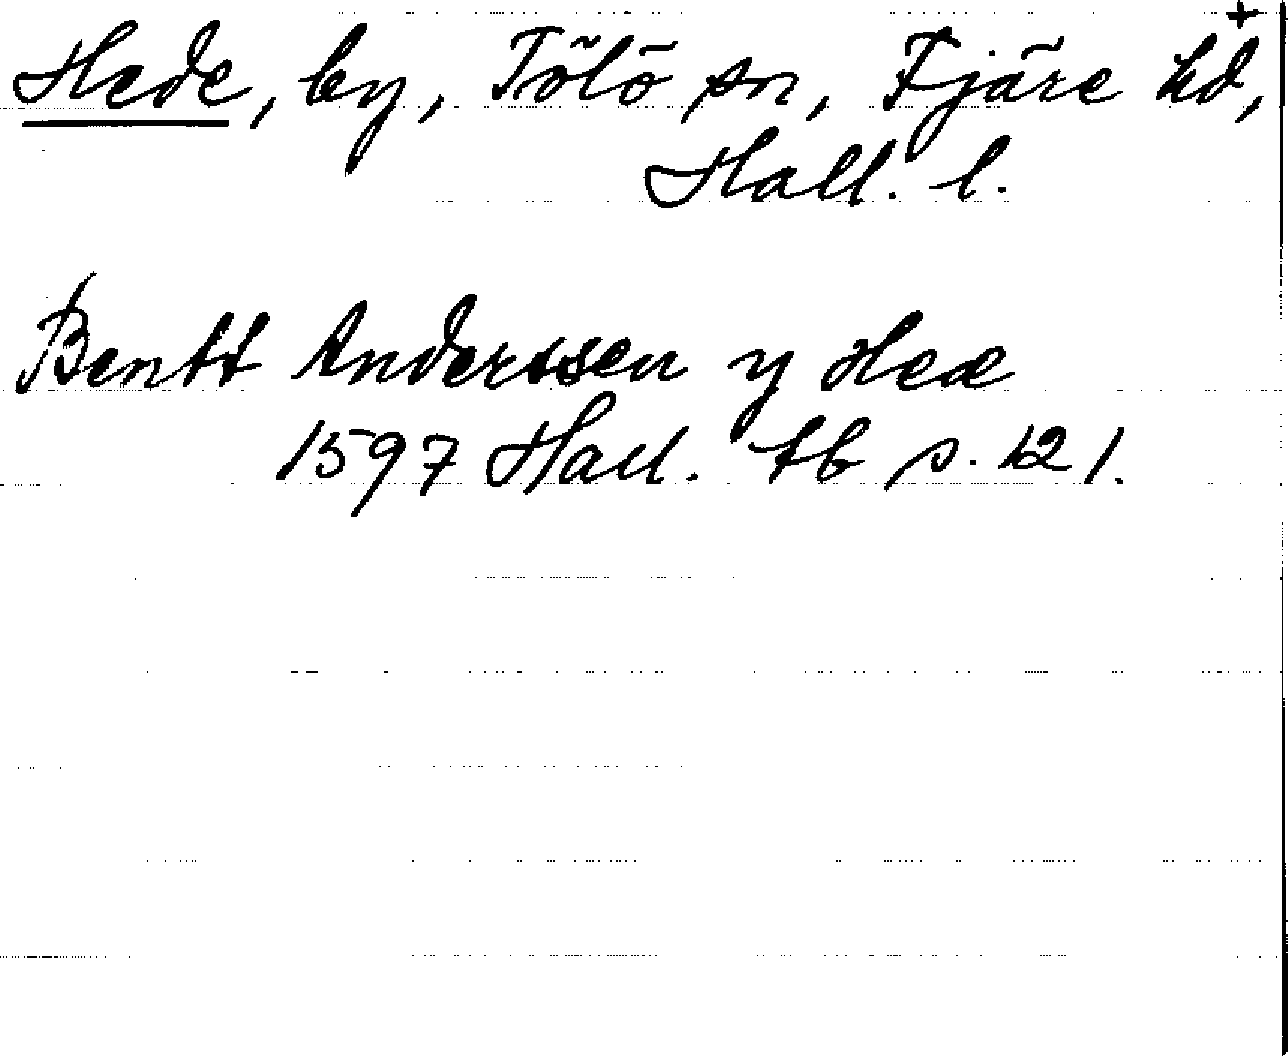 +
Hede, by, Tölö sn, Fjäre hd,
Hall. l.
Bentt Anderssen y Hee
1597 Hall. tb s. 121.